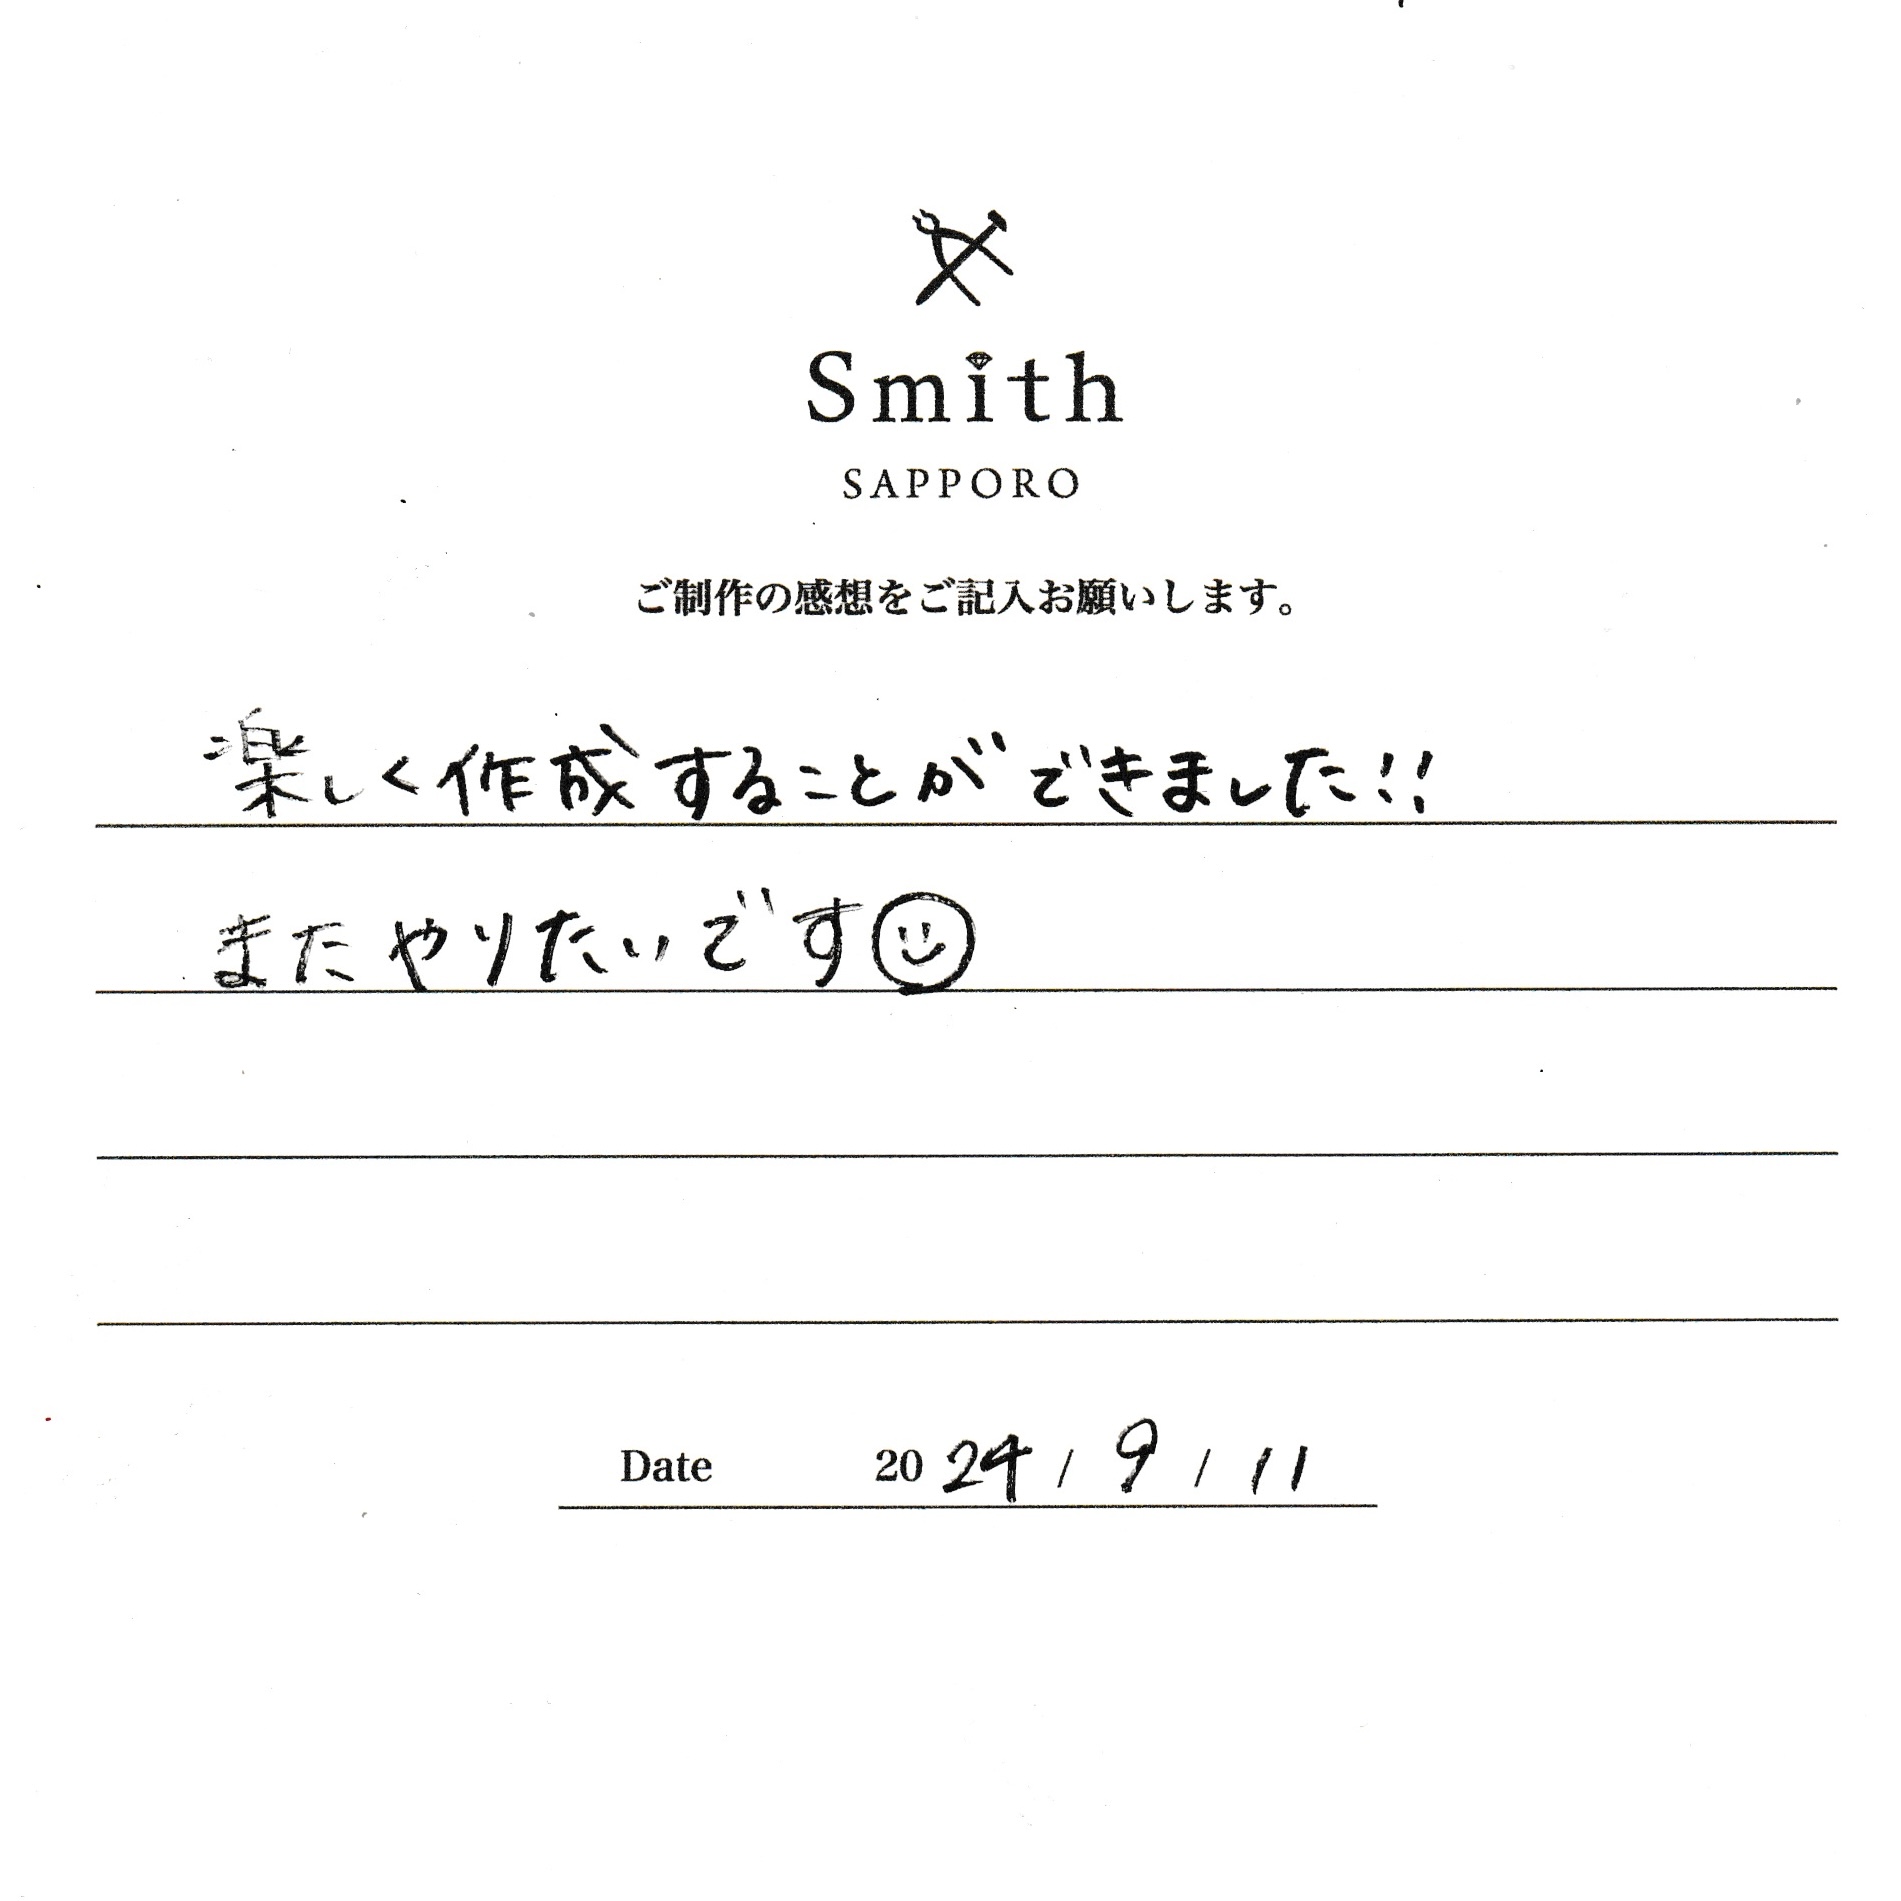 Smith
SAPPORO
ご制作の感想をご記入お願いします。
楽しく作成することができました!!
またやりたいです☺
Date 2024 / 9 / 11